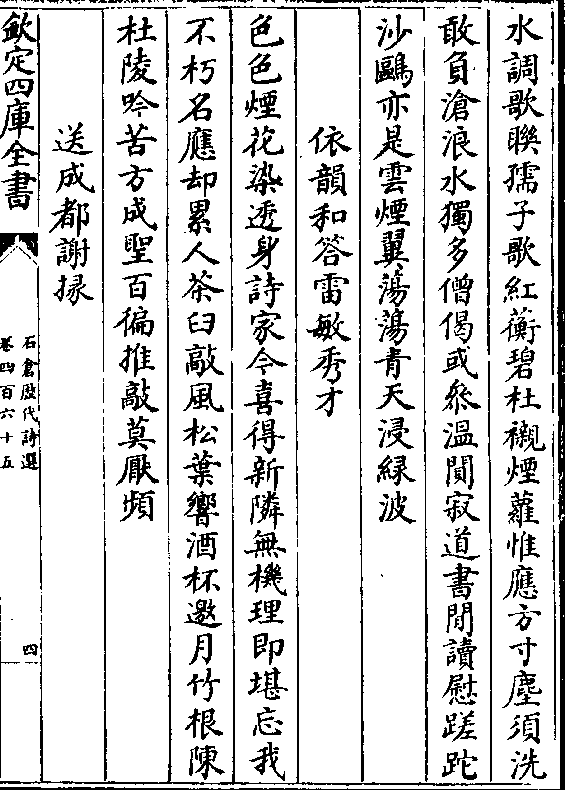 水調歌聯孺子歌紅蘅碧杜襯煙蘿惟應方寸塵須洗
敢負滄浪水獨多僧偈或叅溫閴寂道書閒讀慰蹉跎
沙鷗亦是雲煙翼蕩蕩青天浸緑波
依韻和答雷敏秀才
色色煙花染透身詩家今喜得新隣無機理即堪忘我
不朽名應却累人茶臼敲風松葉響酒杯邀月竹根陳
杜陵吟苦方成聖百徧推敲莫厭頻
送成都謝掾
欽定四庫全書
石倉歴代詩選
卷四百六十五
四